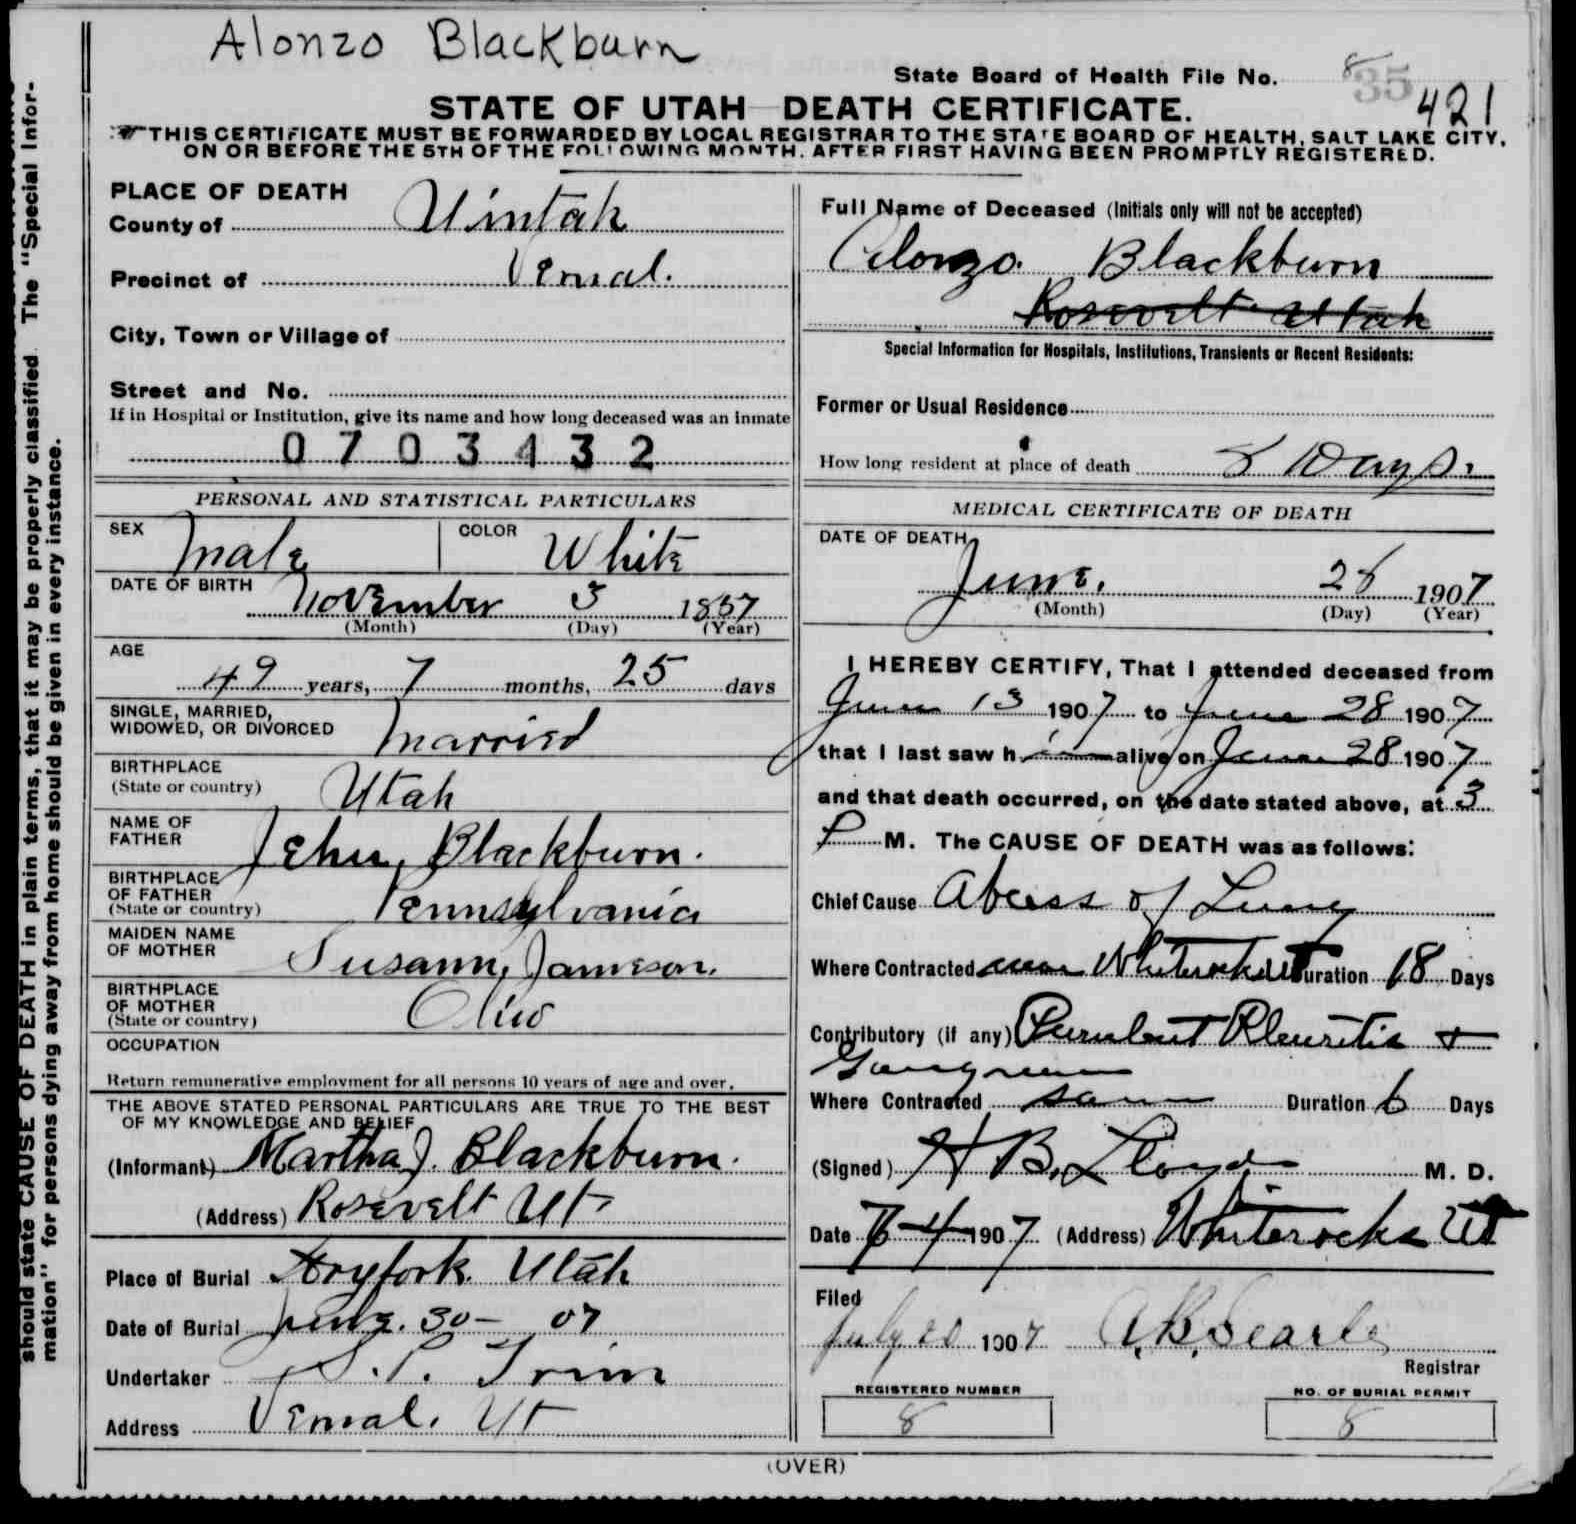 Alonzo Blackburn
State Board of Health File No. 8
35 421
STATE OF UTAH DEATH CERTIFICATE.
THIS CERTIFICATE MUST BE FORWARDED BY LOCAL REGISTRAR TO THE STATE BOARD OF HEALTH, SALT LAKE CITY,
ON OR BEFORE THE 5TH OF THE FOLLOWING MONTH, AFTER FIRST HAVING BEEN PROMPTLY REGISTERED.
should state CAUSE OF DEATH in plain terms, that it may be properly classified. The "Special Infor-
mation" for persons dying away from home should be given in every instance.
PLACE OF DEATH
County of Uintah
Precinct of Vernal.
City, Town or Village of
Street and No.
If in Hospital or Institution, give its name and how long deceased was an inmate
0703432
PERSONAL AND STATISTICAL PARTICULARS
SEX Male COLOR White
DATE OF BIRTH November 3 1857
(Month) (Day) (Year)
AGE
49 years, 7 months, 25 days
SINGLE, MARRIED,
WIDOWED, OR DIVORCED Married
BIRTHPLACE
(State or country) Utah
NAME OF
FATHER Jehu, Blackburn.
BIRTHPLACE
OF FATHER
(State or country) Pennsylvania
MAIDEN NAME
OF MOTHER Susann, Jameson.
BIRTHPLACE
OF MOTHER
(State or country) Ohio
OCCUPATION
Return remunerative employment for all persons 10 years of age and over.
THE ABOVE STATED PERSONAL PARTICULARS ARE TRUE TO THE BEST
OF MY KNOWLEDGE AND BELIEF
(Informant) Martha J. Blackburn.
(Address) Rosevelt Ut
Place of Burial Dryfork Utah
Date of Burial 30- 07
Undertaker S. P. Trim
Address Vernal. Ut
Full Name of Deceased (Initials only will not be accepted)
Alonzo. Blackburn
Rosevelt Utah
Special Information for Hospitals, Institutions, Transients or Recent Residents:
Former or Usual Residence
How long resident at place of death 8 Days.
MEDICAL CERTIFICATE OF DEATH
DATE OF DEATH
June. 28 1907
(Month) (Day) (Year)
I HEREBY CERTIFY, That I attended deceased from
June 13 1907 to June 28 1907
that I last saw him alive on June 28 1907
and that death occurred, on the date stated above, at 3
P M. The CAUSE OF DEATH was as follows:
Chief Cause Abcess of Lung
Where Contracted near Whiterocks Ut Duration 18 Days
Contributory (if any) Purulent Pleuretis +
Gangrene
Where Contracted same Duration 6 Days
(Signed) H B. Lloyd M. D.
Date 7-4-1907 (Address) Whiterocks Ut
Filed
July 20 1907 A.B. Searle
Registrar
REGISTERED NUMBER NO. OF BURIAL PERMIT
8 8
(OVER)